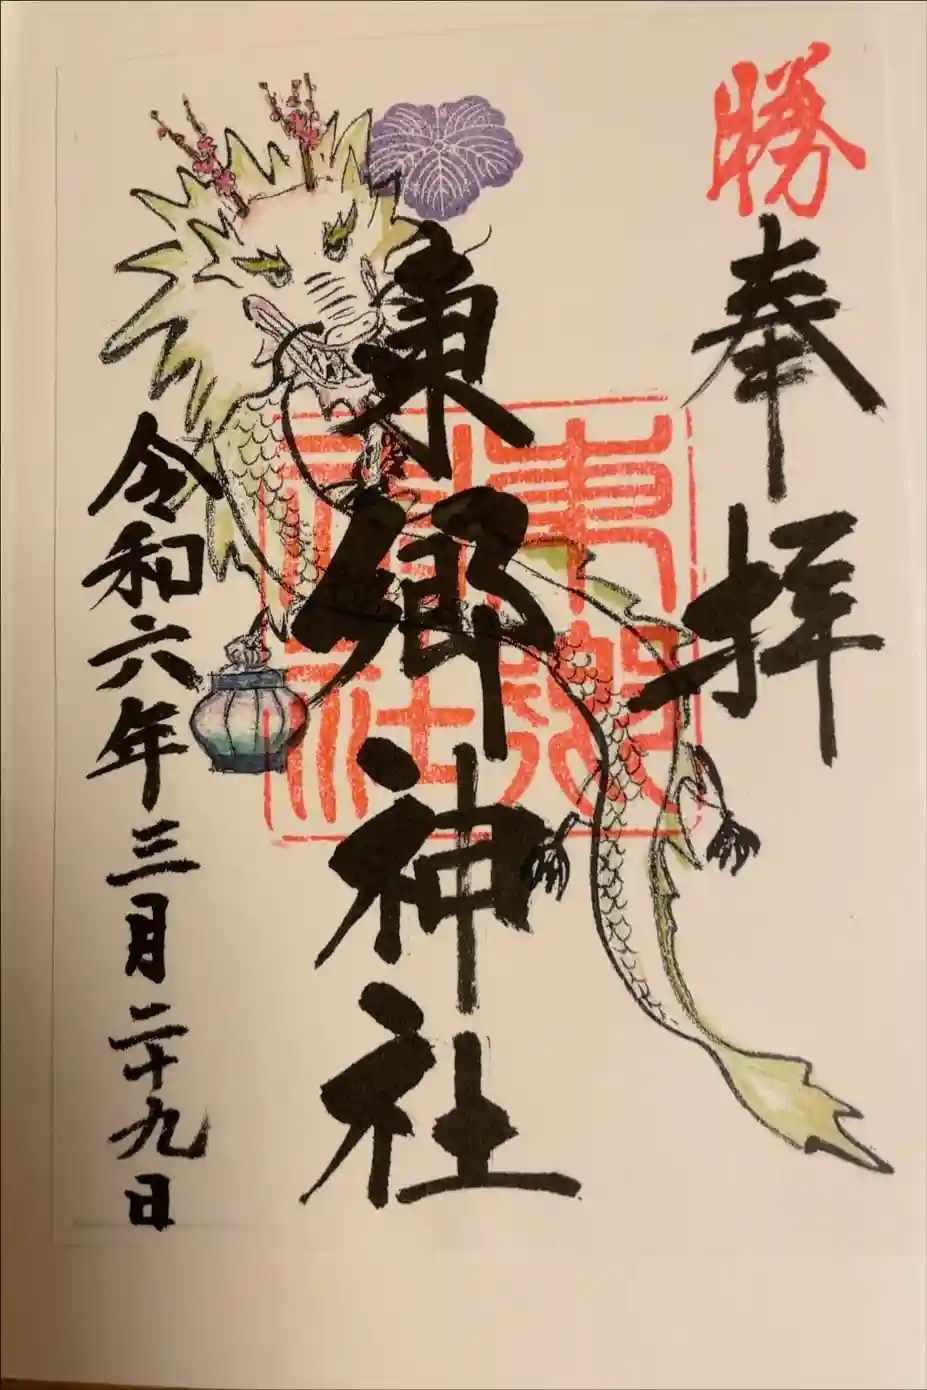 勝
奉拝
東郷神社
東郷神社
令和六年三月二十九日